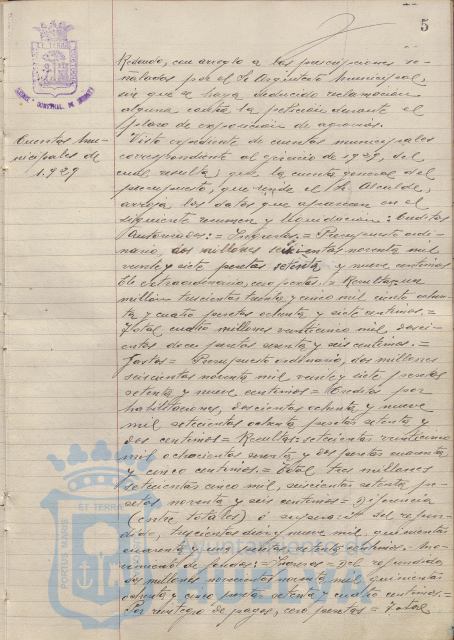 5
Redondo, con arreglo a las prescripciones se-
ñaladas por el Sr. Arquitecto municipal,
sin que se haya deducido reclamación
alguna contra la petición durante el
plazo de exposición de agravios.
Cuentas mu-
nicipales de
1.929
Visto expediente de cuentas municipales
correspondiente al ejercicio de 1929, del
cual resulta, que la cuenta general del
presupuesto, que rinde el Sr. Alcalde,
arroja los datos que aparecen en el
siguiente resumen y liquidación: Créditos
Autorizados: = Ingresos = Presupuesto ordi-
nario, dos millones seiscientas noventa mil
veinte y siete pesetas setenta y nueve céntimos
Id. extraordinario, cero pesetas. = Resultas un
millón trescientas treinta y cinco mil ciento ochen-
ta y cuatro pesetas ochenta y siete céntimos. =
Total cuatro millones veinticinco mil doscien-
tas doce pesetas sesenta y seis céntimos. =
Gastos = Presupuesto ordinario, dos millones
seiscientas noventa mil veinte y siete pesetas
setenta y nueve céntimos = Créditos por
habilitaciones, doscientas ochenta y nueve
mil setecientas ochenta pesetas setenta y
dos céntimos = Resultas setecientas veinticinco
mil ochocientas y pesetas cuarenta
y cinco céntimos. = Total tres millones
setecientas cinco mil, seiscientas setenta pe-
setas noventa y seis céntimos = Diferencia
(entre totales) o superávit del refun-
dido, trescientas diez y nueve mil quinientas
cuarenta y una pesetas setenta céntimos. = Mo-
vimiento de fondos: = Ingresos = Del refundido
dos millones novecientas noventa mil quinientas
ochenta y cinco pesetas setenta y cuatro céntimos. =
Por reintegro de pagos, cero pesetas = Total
ET TERRA
PORTUS MARIS
Ayuntamiento de